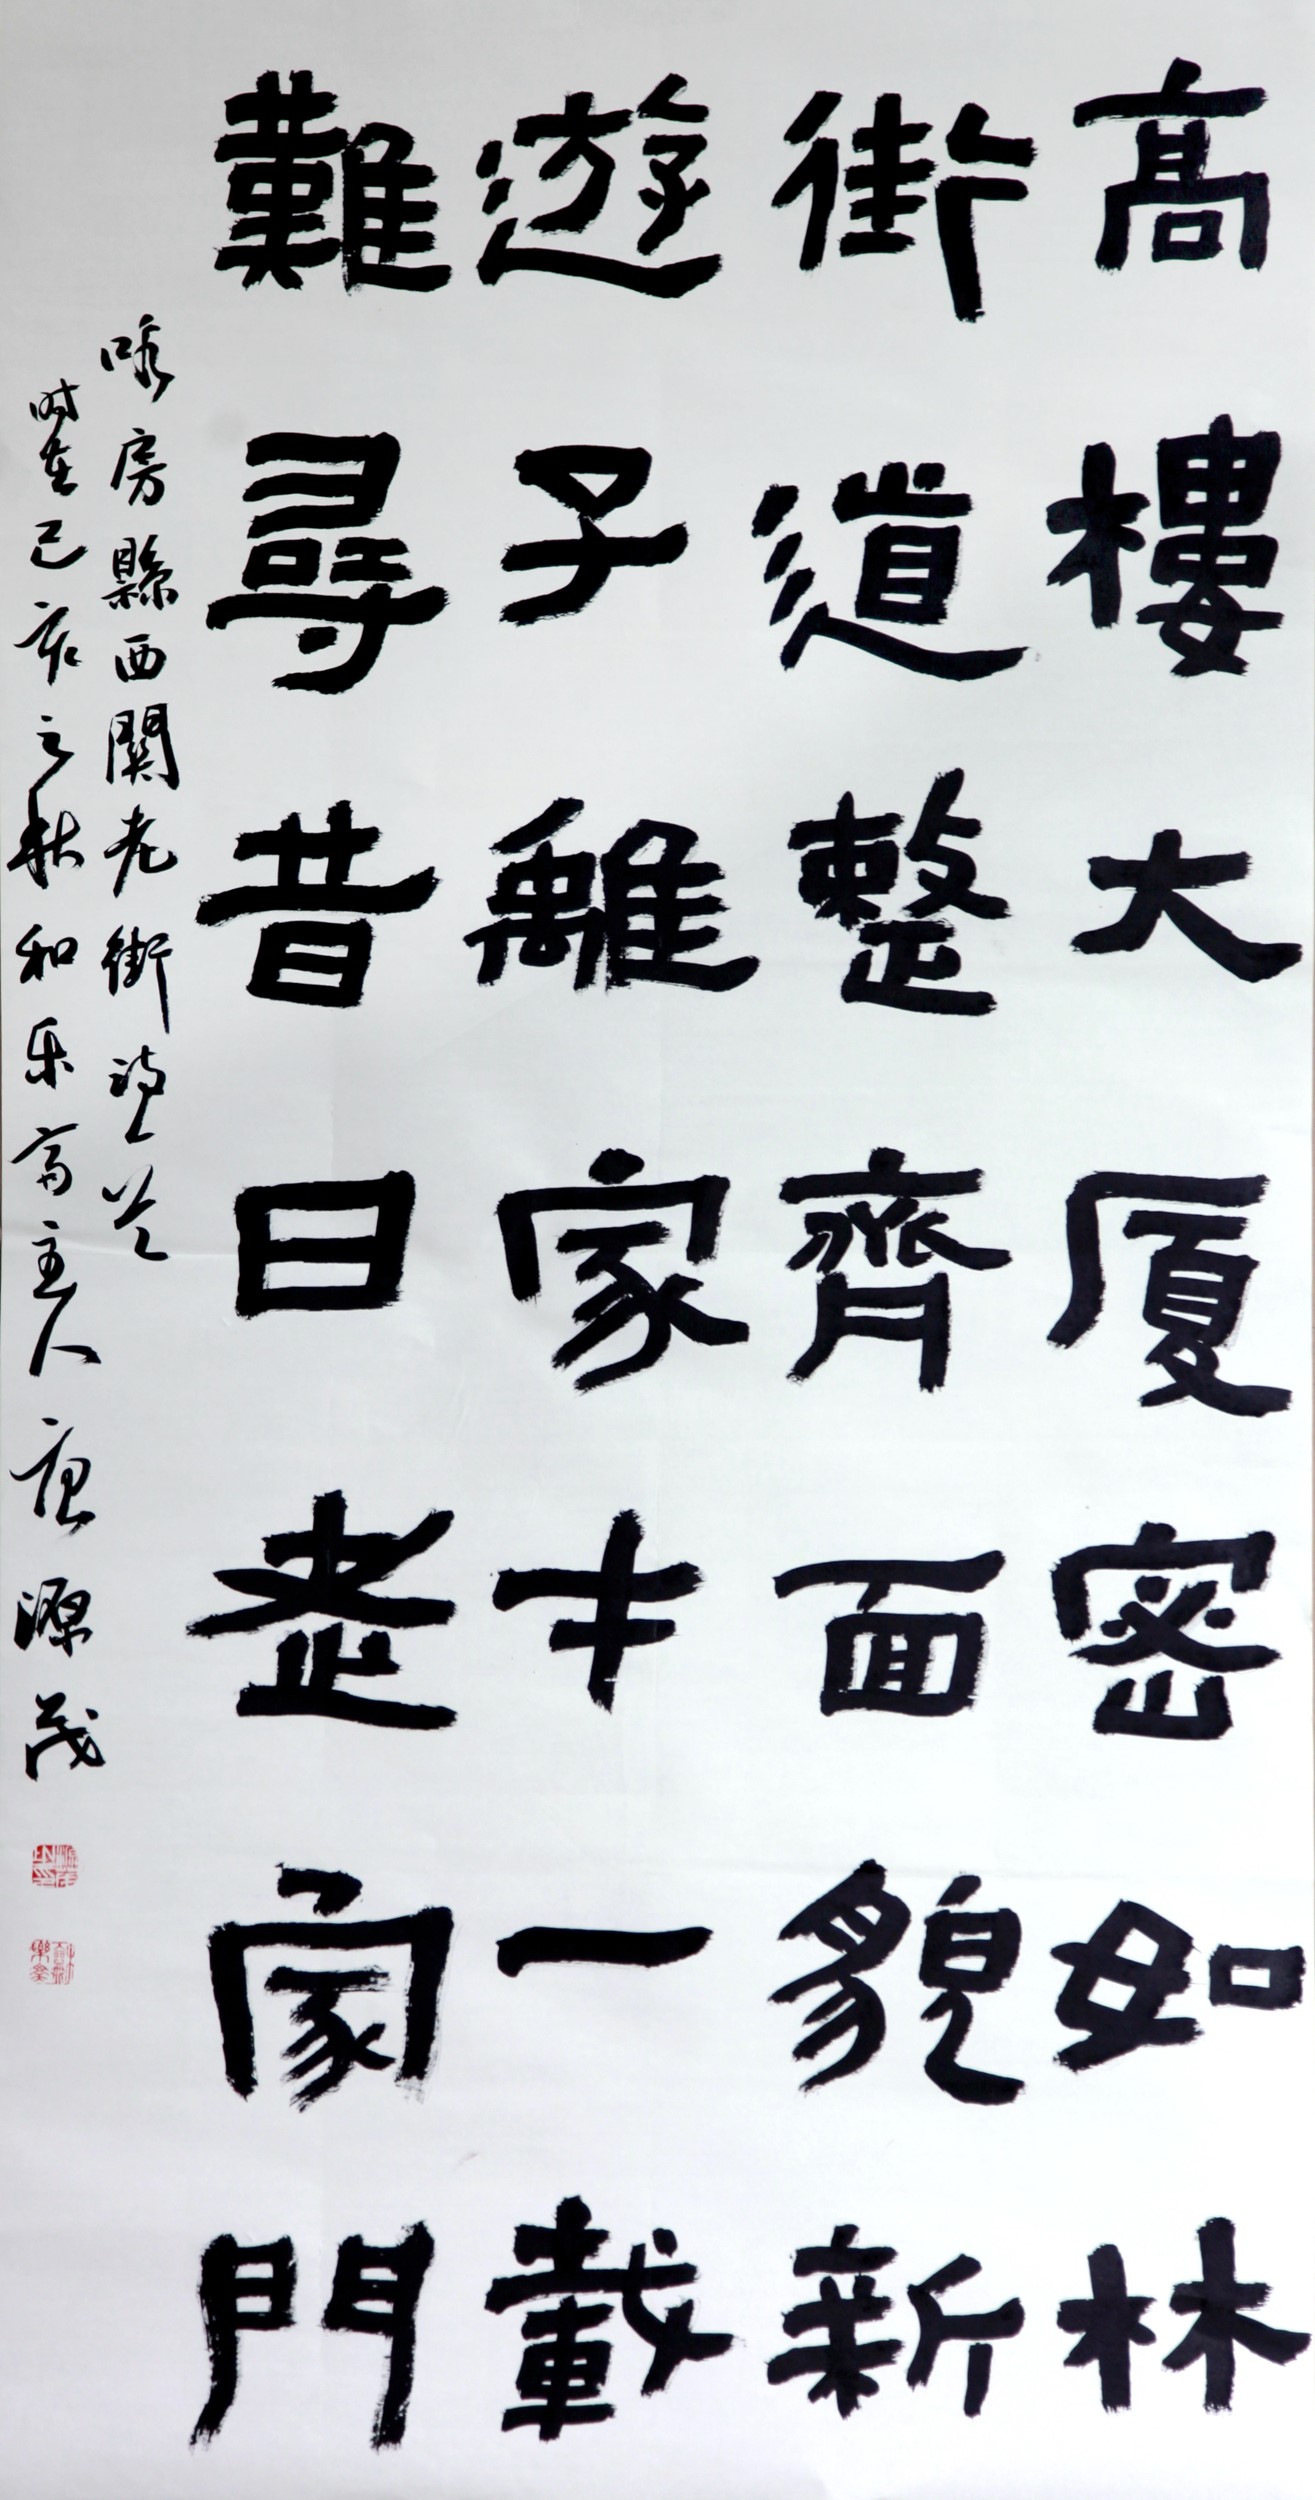 高樓大厦密如林
街道整齊面貌新
遊子離家才一載
難尋昔日老家門
咏房縣西關老街詩一首
时在己亥之秋和乐斋主人唐源茂